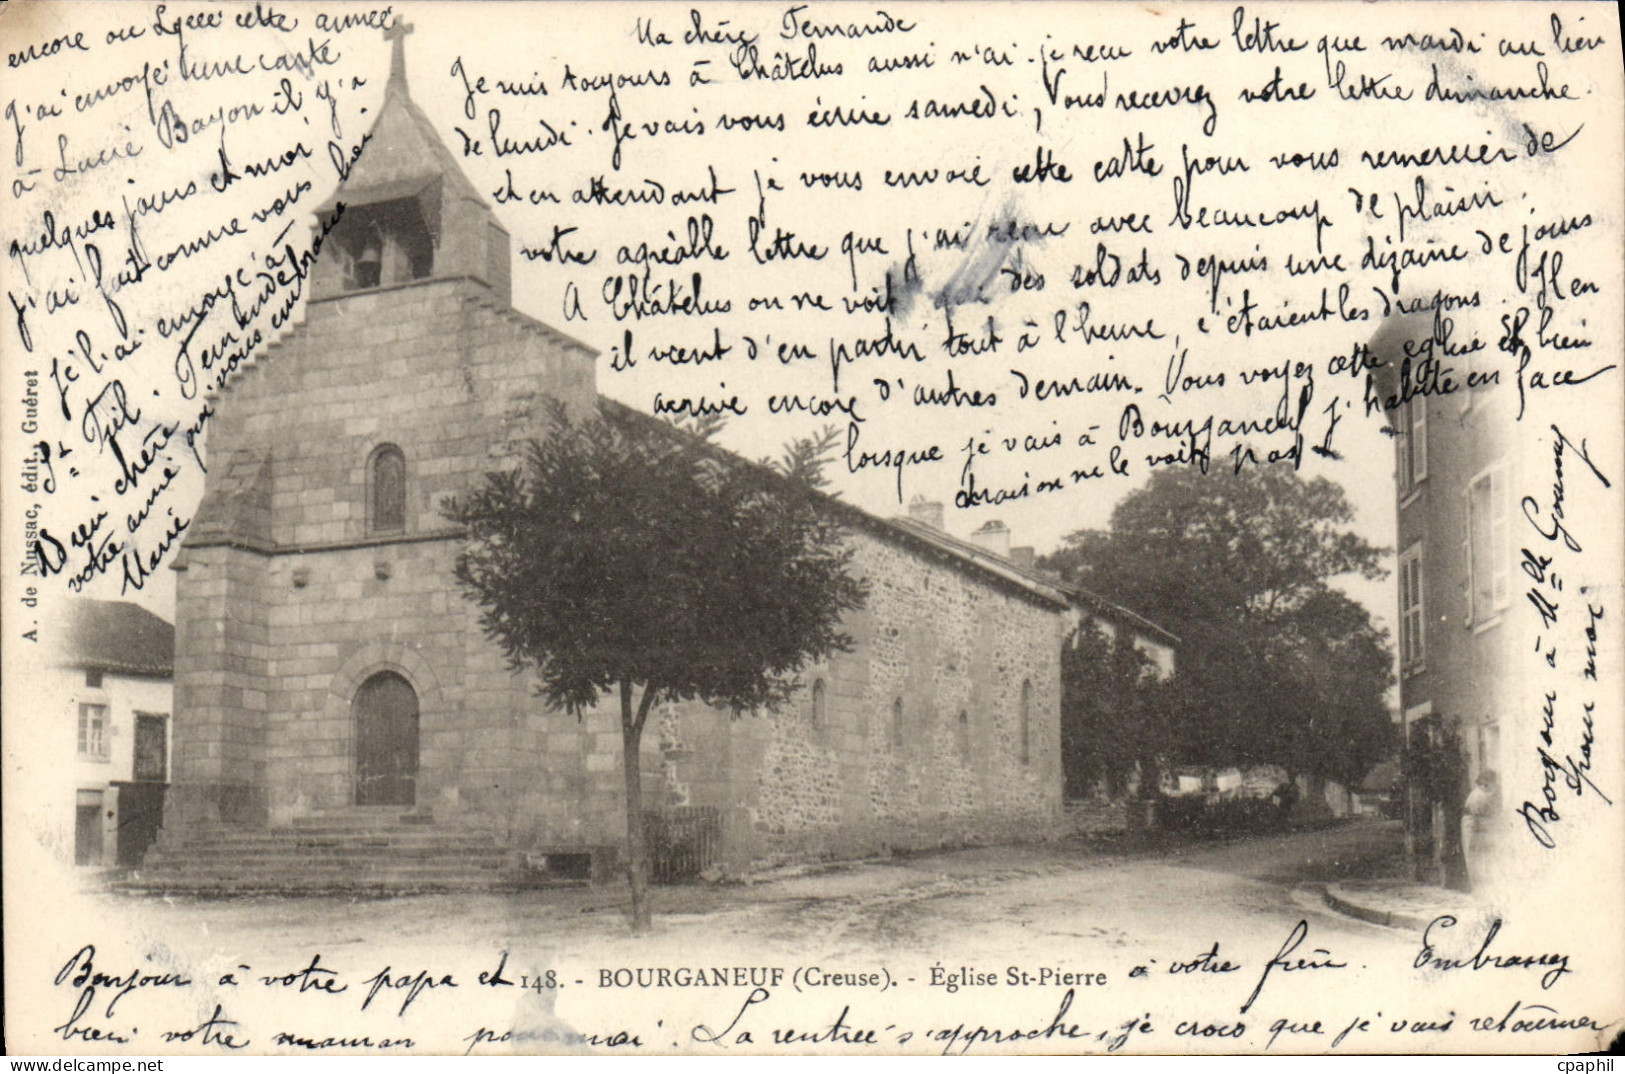 Ma chère Fernande
Je suis toujours à Châtelus aussi n'ai-je reçu votre lettre que mardi au lieu
de lundi. Je vais vous écrire samedi, vous recevrez votre lettre dimanche.
et en attendant je vous envoie cette carte pour vous remercier de
votre agréable lettre que j'ai reçu avec beaucoup de plaisir.
A Châtelus on ne voit que des soldats depuis une dizaine de jours
il vient d'en partir tout à l'heure, c'étaient les dragons. Il en
arrive encore d'autres demain. Vous voyez cette eglise et bien
lorsque je vais à Bourganeuf j'habite en face
la maison ne le voit pas
Bonjour à Mlle Goumy
pour moi
Bonjour à votre papa et à votre frère. Embrassez
bien votre maman pour moi. La rentrée s'approche, je crois que je vais retourner
encore au Lycée cette année
J'ai envoyé une carte
à Lucie Bayon il y'a
quelques jours et moi
j'ai fait comme vous
je l'ai envoyé à
St Fiel.
Bien chère Fernande
votre amie qui vous embrasse
Marie
148. - BOURGANEUF (Creuse). - Église St-Pierre
A. de Nussac, édit., Guéret
cpaphil